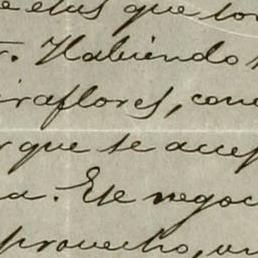 e estas que los
r. Habiendo
iraflores, con
r que se acep
a. Ese negoc
provecho, un